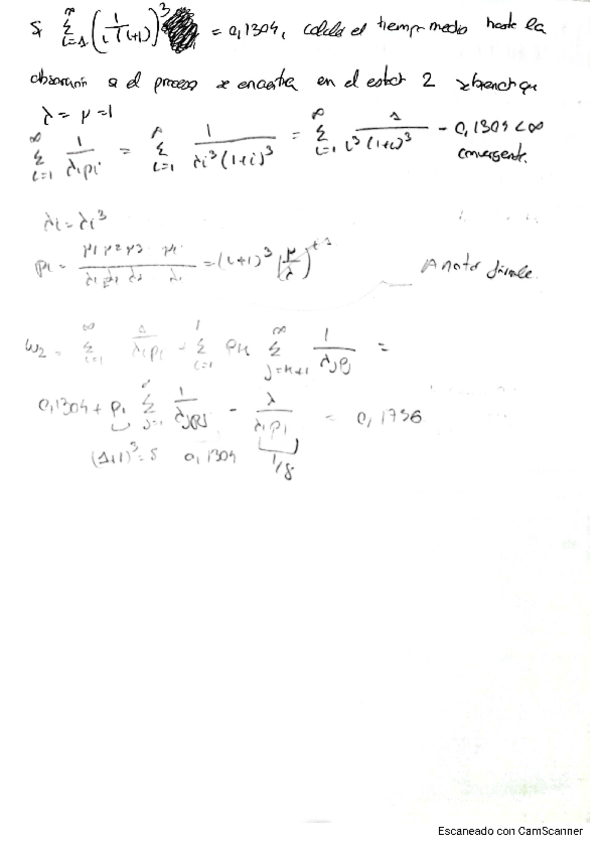 Si ∞ Σ i=1 (1/i(i+1))^3 = 0,1304, calcula el tiempo medio hasta la
absorción si el proceso se encuentra en el estado 2 sabiendo que
λ = μ = 1
∞ Σ i=1 1/λipi = ∞ Σ i=1 1/λi^3(1+i)^3 = ∞ Σ i=1 1/i^3(1+i)^3 = 0,1304 < ∞
convergente.
λi = λi^3
ρi = μ1 μ2 μ3 μi / λ1 λ2 λi = (i+1)^3 (μ/λ)
A notar
W2 = ∞ Σ i=1 1/λiρi + 1 Σ i=1 ρk ∞ Σ j=k+1 1/λjρj =
0,1304 + ρ1 Σ 1/λjρj - λ/λ1ρ1 = 0,1756
(1+1)^3 = 8 0,1304 1/8
Escaneado con CamScanner